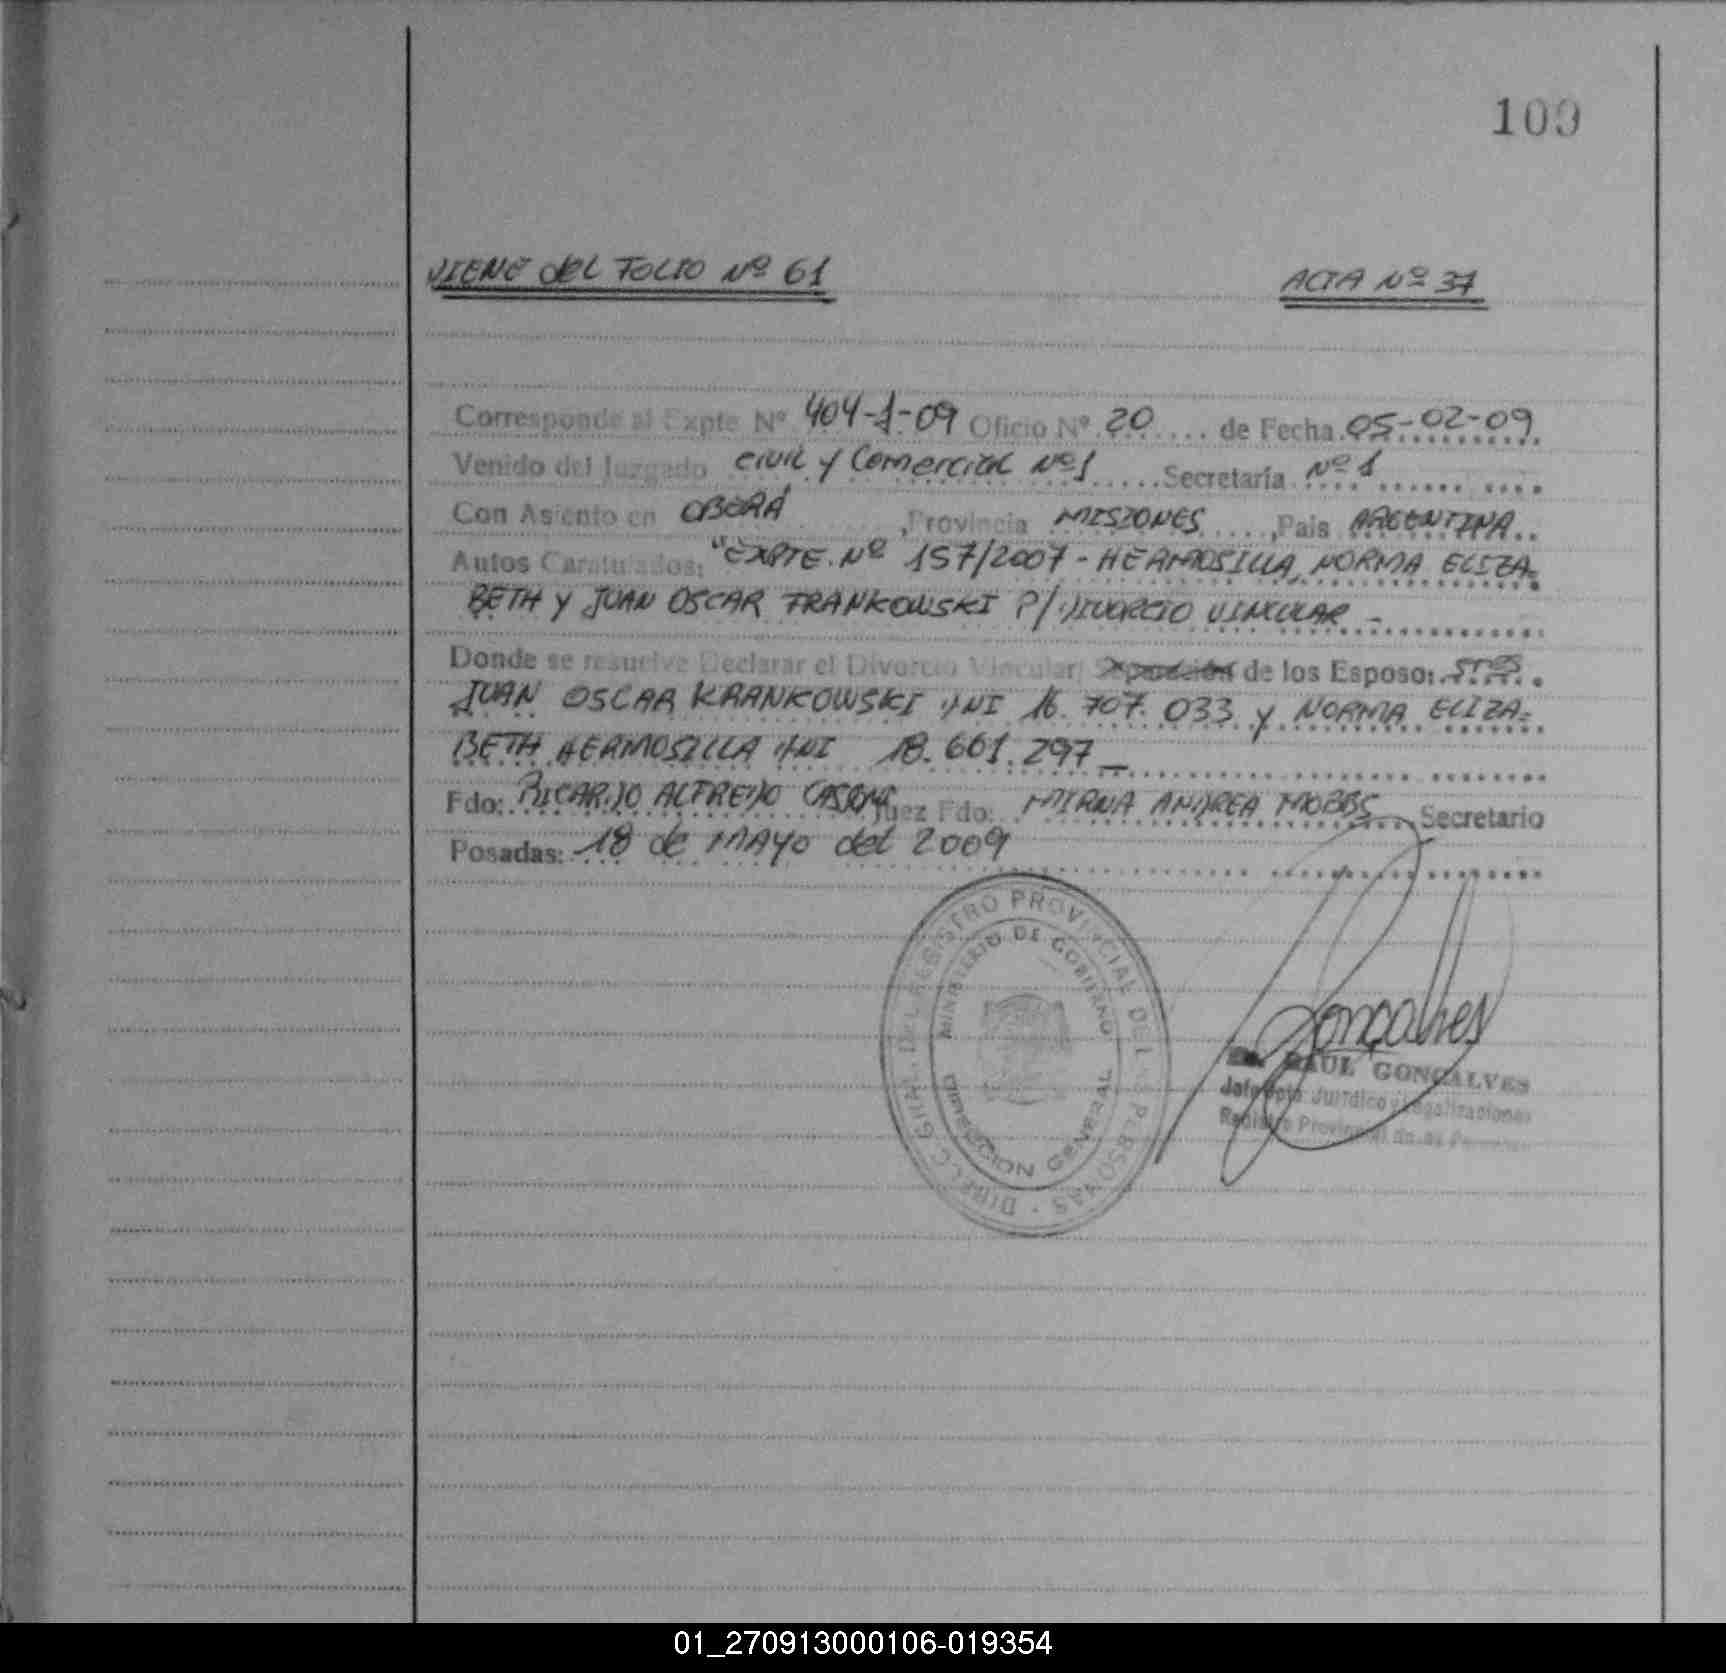 109
VIENE del FOLIO Nº 61
ACTA Nº 37
Corresponde al Expte Nº 404-1-09 Oficio Nº 20 .... de Fecha 05-02-09
Venido del Juzgado civil y Comercial Nº1 ..... Secretaría Nº 1
Con Asiento en OBERÁ ,Provincia MISIONES ,Pais ARGENTINA..
Autos Caratulados: "EXPTE. Nº 157/2007 - HERMOSILLA, NORMA ELIZA-
BETH y JUAN OSCAR FRANKOWSKI P/ DIVORCIO VINCULAR -
Donde se resuelve Declarar el Divorcio Vincular Separación de los Esposo: Sres.
JUAN OSCAR KRANKOWSKI DNI 16.707.033 y NORMA ELIZA-
BETH HERMOSILLA DNI 18.661.297_
Fdo: RICARDO ALFREDO Juez Fdo: MIRNA ANDREA MOBBS Secretario
Posadas: 18 de MAYO del 2009
DIRECC. GRAL. DEL REGISTRO PROVINCIAL DE LAS PERSONAS
MINISTERIO DE GOBIERNO
DIRECCION GENERAL
Gonçalves
RAUL GONÇALVES
Jefe Dpto. Jurídico y Legalizaciones
Registro Provincial de las Personas
01_270913000106-019354